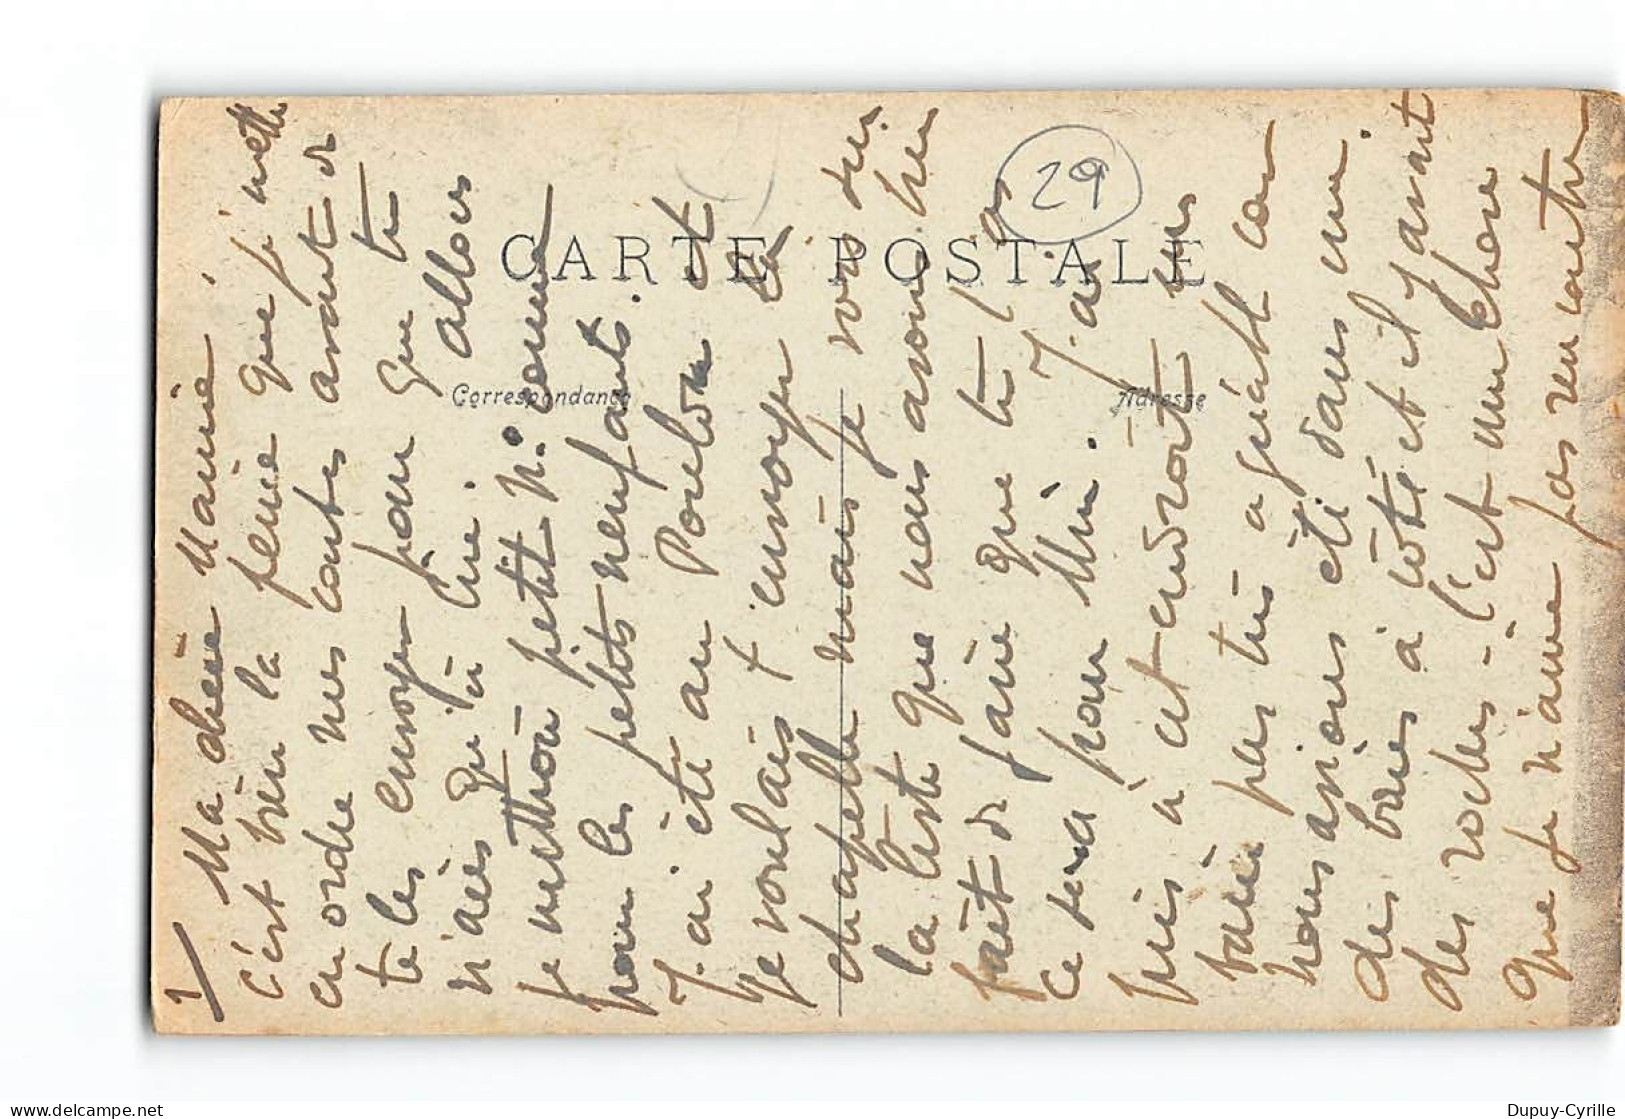 1/ Ma chère Mamie.
c'est bien la peine que je mette
en ordre mes cartes avant de
te les envoyer pour que tu
n'aies qu'à lire.
je mettrai petit n° comme
pour les petits enfants.
J'ai été au Pouldu et
je voulais t'envoyer la
chapelle mais je vois sur
la liste que nous avons
fait de faire que tu l'as
ce sera pour Min. J'ai
pris à cet endroit un
bain pas très agréable car
nous avions été dans une
des baies à côté et il y avait
des roches - c'est une chose
que je n'avais pas rencontré
CARTE POSTALE
Correspondance
Adresse
29
Dupuy-Cyrille